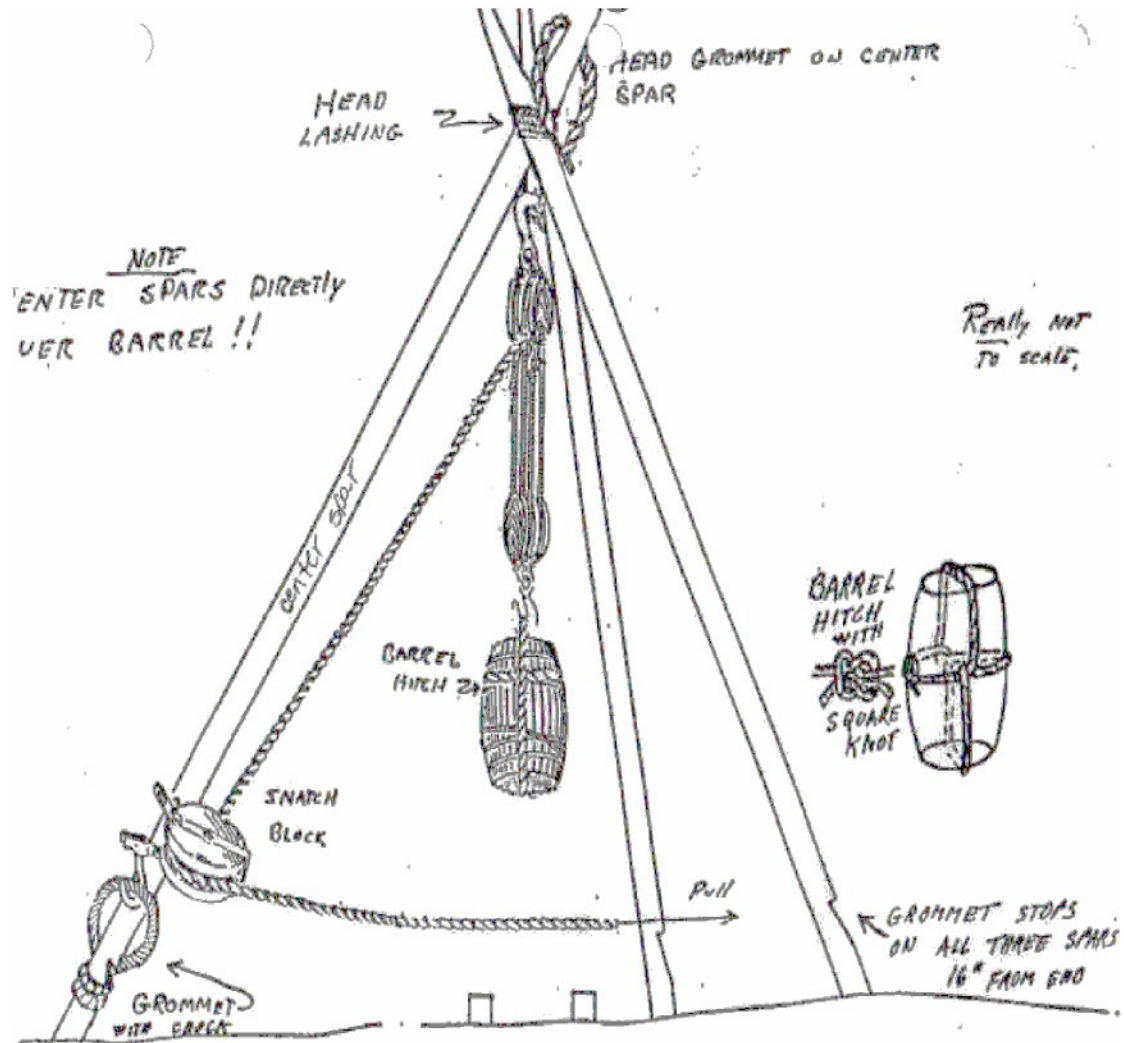 HEAD GROMMET ON CENTER
SPAR
HEAD
LASHING
NOTE
ENTER SPARS DIRECTLY
UER BARREL !!
Really NOT
TO SCALE.
center spar
BARREL
HITCH
BARREL
HITCH
WITH
SQUARE
KNOT
SNATCH
BLOCK
Pull
GROMMET STOPS
ON ALL THREE SPARS
16" FROM END
GROMMET
WITH